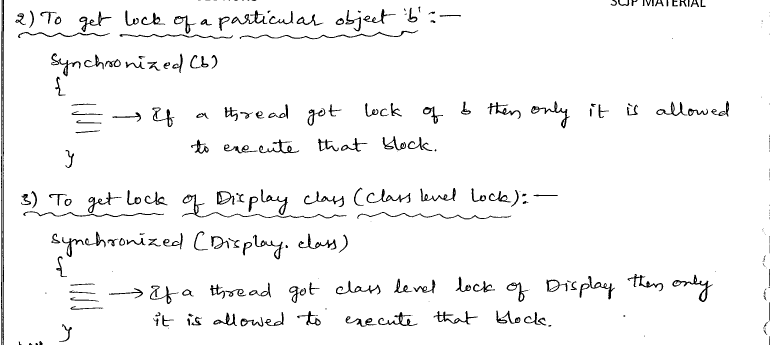 SCJP MATERIAL
2) To get lock of a particular object 'b' :—
Synchronized (b)
{
→ If a thread got lock of b then only it is allowed
to execute that block.
}
3) To get lock of Display class (class level lock):—
Synchronized (Display.class)
{
→ If a thread got class level lock of Display then only
it is allowed to execute that block.
}